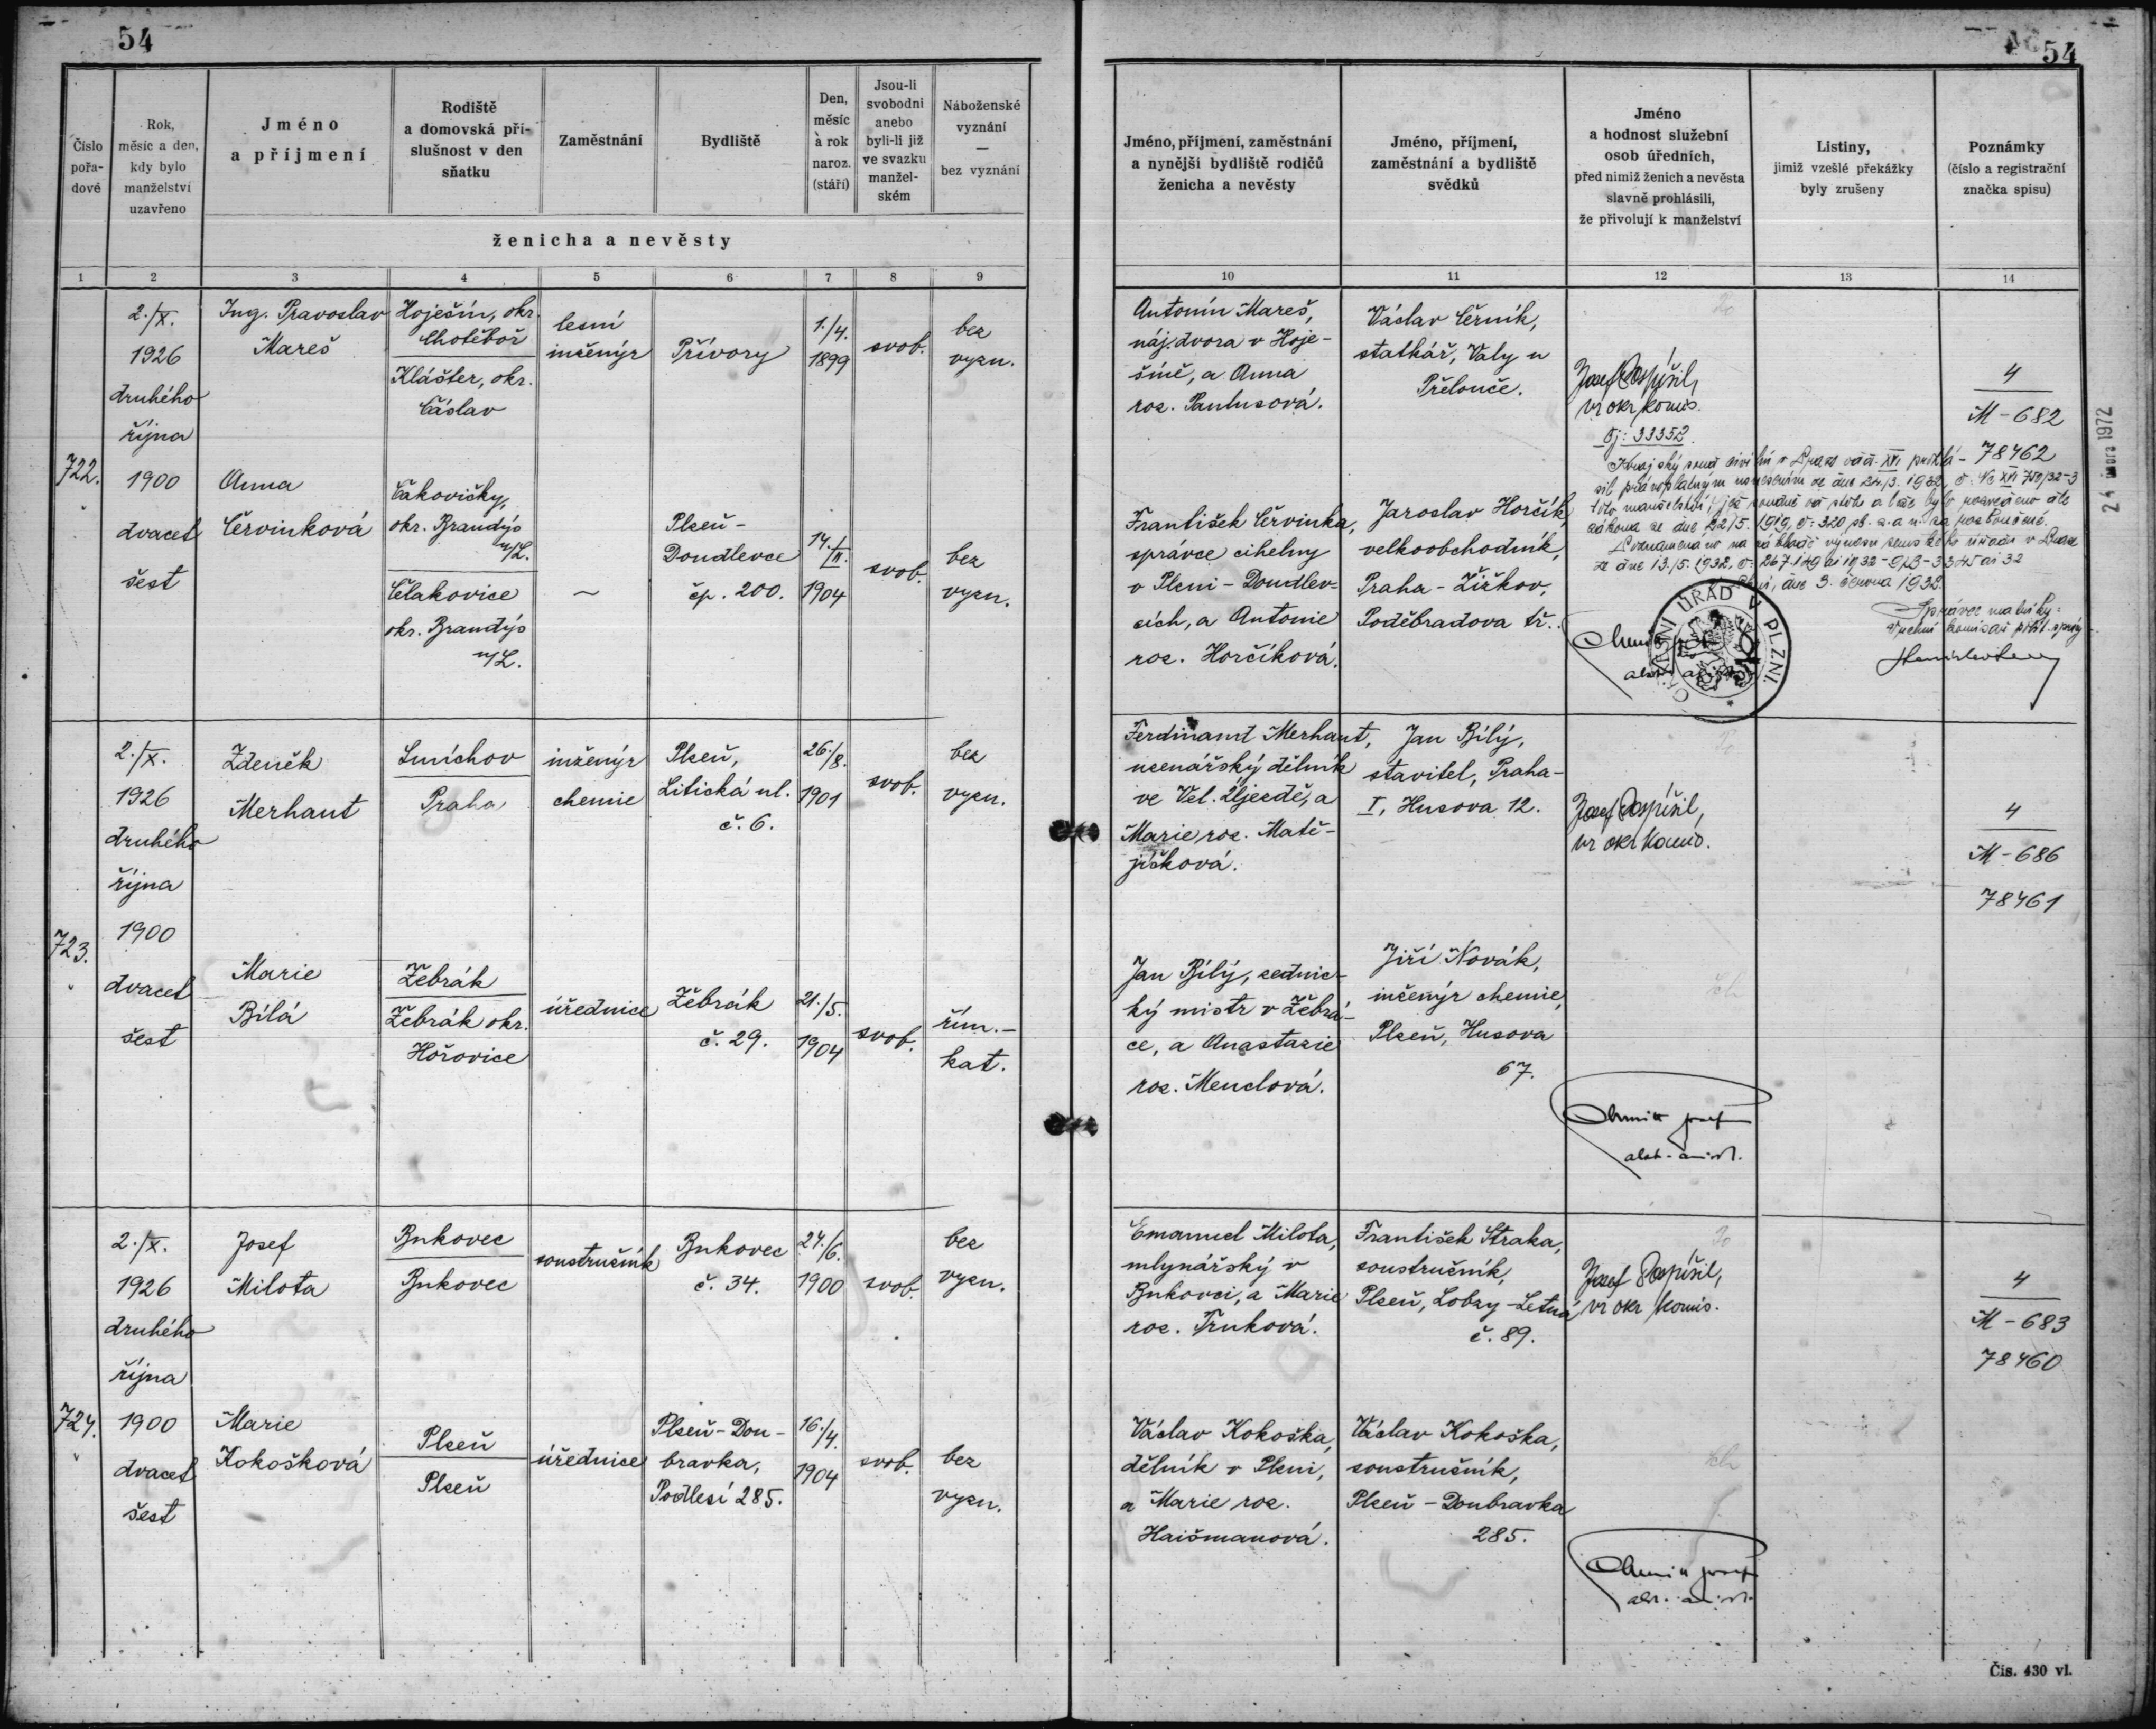 54
54
Číslo pořa-dové
Rok, měsíc a den, kdy bylo manželství uzavřeno
Jméno a příjmení
Rodiště a domovská pří-slušnost v den sňatku
Zaměstnání
Bydliště
Den, měsíc a rok naroz. (stáří)
Jsou-li svobodni anebo byli-li již ve svazku manžel-ském
Náboženské vyznání — bez vyznání
ženicha a nevěsty
Jméno, příjmení, zaměstnání a nynější bydliště rodičů ženicha a nevěsty
Jméno, příjmení, zaměstnání a bydliště svědků
Jméno a hodnost služební osob úředních, před nimiž ženich a nevěsta slavně prohlásili, že přivolují k manželství
Listiny, jimiž vzešlé překážky byly zrušeny
Poznámky (číslo a registrační značka spisu)
1 2 3 4 5 6 7 8 9 10 11 12 13 14
722.
2./X.
1926
druhého
října
1900
dvacet
šest
Ing. Pravoslav
Mareš
Hoješín, okr.
Chotěboř
Klášter, okr.
Čáslav
lesní
inženýr
Přívory
1./4.
1899
svob.
bez
vyzn.
Antonín Mareš,
náj. dvora v Hoje-
šíně, a Anna
roz. Paulusová.
Václav Černík,
statkář, Valy u
Přelouče.
Josef Pospíšil,
vr. okr. komis.
Čj: 33352
4
M-682
78462
24 února 1972
Anna
Červinková
Čakovičky,
okr. Brandýs
n/L.
Čelakovice
okr. Brandýs
n/L.
~
Plzeň-
Doudlevce
čp. 200.
14./II.
1904
svob.
bez
vyzn.
František Červinka,
správce cihelny
v Plzni - Doudlev-
cích, a Antonie
roz. Horčíková.
Jaroslav Horčík,
velkoobchodník,
Praha - Žižkov,
Poděbradova tř..
Krajský soud civilní v Praze odd. XVI prohlá-
sil právoplatným usnesením ze dne 24./3. 1932, č. Nc XVI 750/32-3
toto manželství,
zákona ze dne 22/5. 1919, č. 320 sb. z. a n. za rozloučené.
Poznamenáno na základě výnosu zemského úřadu v Praze
ze dne 13./5. 1932, č. 267.149 ai 1932
dne 3. června 1932.
Správce matriky:
Vrchní komisař polit. správy
ÚŘAD V PLZNI.
723.
2./X.
1926
druhého
října
1900
dvacet
šest
Zdeněk
Merhaut
Smíchov
Praha
inženýr
chemie
Plzeň,
Litická ul.
č. 6.
26./8.
1901
svob.
bez
vyzn.
Ferdinand Merhaut,
uzenářský dělník
ve Vel. Újezdě, a
Marie roz. Matě-
jíčková.
Jan Bílý,
stavitel, Praha-
I, Husova 12.
Josef Pospíšil,
vr. okr. komis.
4
M-686
78461
Marie
Bílá
Žebrák
Žebrák okr.
Hořovice
úřednice
Žebrák
č. 29.
21./5.
1904
svob.
řím.-
kat.
Jan Bílý, zednic-
ký mistr v Žebrá-
ce, a Anastazie
roz. Menclová.
Jiří Novák,
inženýr chemie,
Plzeň, Husova
67.
724.
2./X.
1926
druhého
října
1900
dvacet
šest
Josef
Milota
Bukovec
Bukovec
soustružník
Bukovec
č. 34.
24./6.
1900
svob.
bez
vyzn.
Emanuel Milota,
mlynářský v
Bukovci, a Marie
roz. Trnková.
František Straka,
soustružník,
Plzeň, Lobzy-Letná
č. 89.
Josef Pospíšil,
vr. okr. komis.
4
M-683
78460
Marie
Kokošková
Plzeň
Plzeň
úřednice
Plzeň-Dou-
bravka,
Podlesí 285.
16./4.
1904
svob.
bez
vyzn.
Václav Kokoška,
dělník v Plzni,
a Marie roz.
Haišmanová.
Václav Kokoška,
soustružník,
Plzeň - Doubravka
285.
Čís. 430 vl.